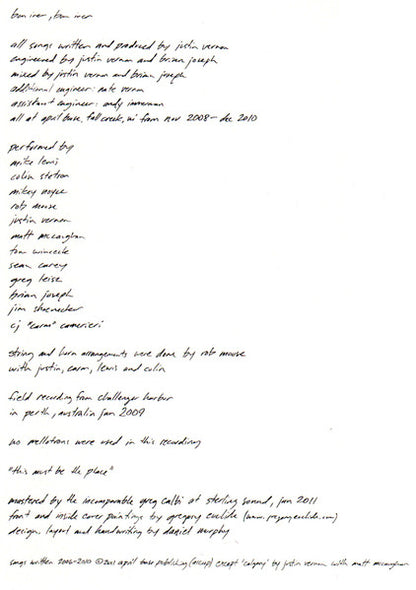 bon iver, bon iver
all songs written and produced by justin vernon
engineered by justin vernon and brian joseph
mixed by justin vernon and brian joseph
additional engineer: nate vernon
assistant engineer: andy
all at april base, fall creek, wi from nov 2008 - dec 2010
performed by
mike lewis
colin stetson
mikey noyce
rob moose
justin vernon
matt mccaughan
tom wincek
sean carey
greg leisz
brian joseph
jim schoenecker
cj "carm" camerieri
string and horn arrangements were done by rob moose
with justin, carm, lewis and colin
field recording from challenger harbor
in perth, australia jan 2009
no mellotrons were used in this recording
"this must be the place"
mastered by the incomparable greg calbi at sterling sound, jan 2011
front and inside cover paintings by gregory euclide (www.gregoryeuclide.com)
design, layout and handwriting by daniel murphy
songs written 2006-2010 ©2011 april base publishing (ascap) except 'calgary' by justin vernon with matt mccaughan